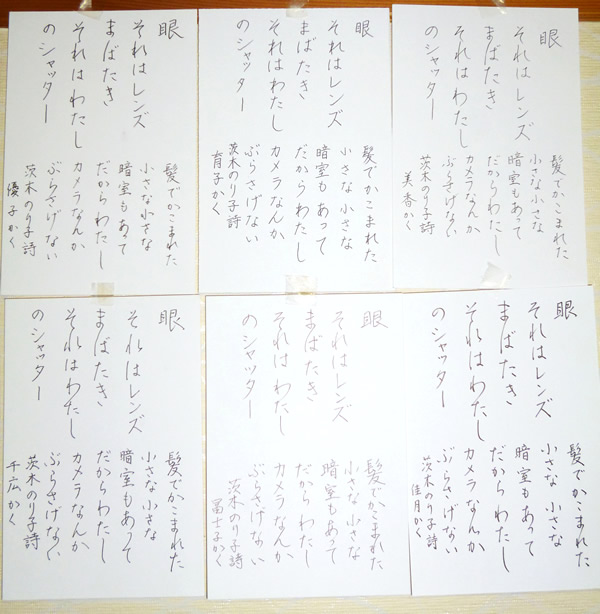 眼
それはレンズ
まばたき
それはわたし
のシャッター
髪でかこまれた
小さな小さな
暗室もあって
だからわたし
カメラなんか
ぶらさげない
茨木のり子詩
美香かく
眼
それはレンズ
まばたき
それはわたし
のシャッター
髪でかこまれた
小さな小さな
暗室もあって
だからわたし
カメラなんか
ぶらさげない
茨木のり子詩
育子かく
眼
それはレンズ
まばたき
それはわたし
のシャッター
髪でかこまれた
小さな小さな
暗室もあって
だからわたし
カメラなんか
ぶらさげない
茨木のり子詩
優子かく
眼
それはレンズ
まばたき
それはわたし
のシャッター
髪でかこまれた
小さな小さな
暗室もあって
だからわたし
カメラなんか
ぶらさげない
茨木のり子詩
佳月かく
眼
それはレンズ
まばたき
それはわたし
のシャッター
髪でかこまれた
小さな小さな
暗室もあって
だからわたし
カメラなんか
ぶらさげない
茨木のり子詩
冨士子かく
眼
それはレンズ
まばたき
それはわたし
のシャッター
髪でかこまれた
小さな小さな
暗室もあって
だからわたし
カメラなんか
ぶらさげない
茨木のり子詩
千広かく